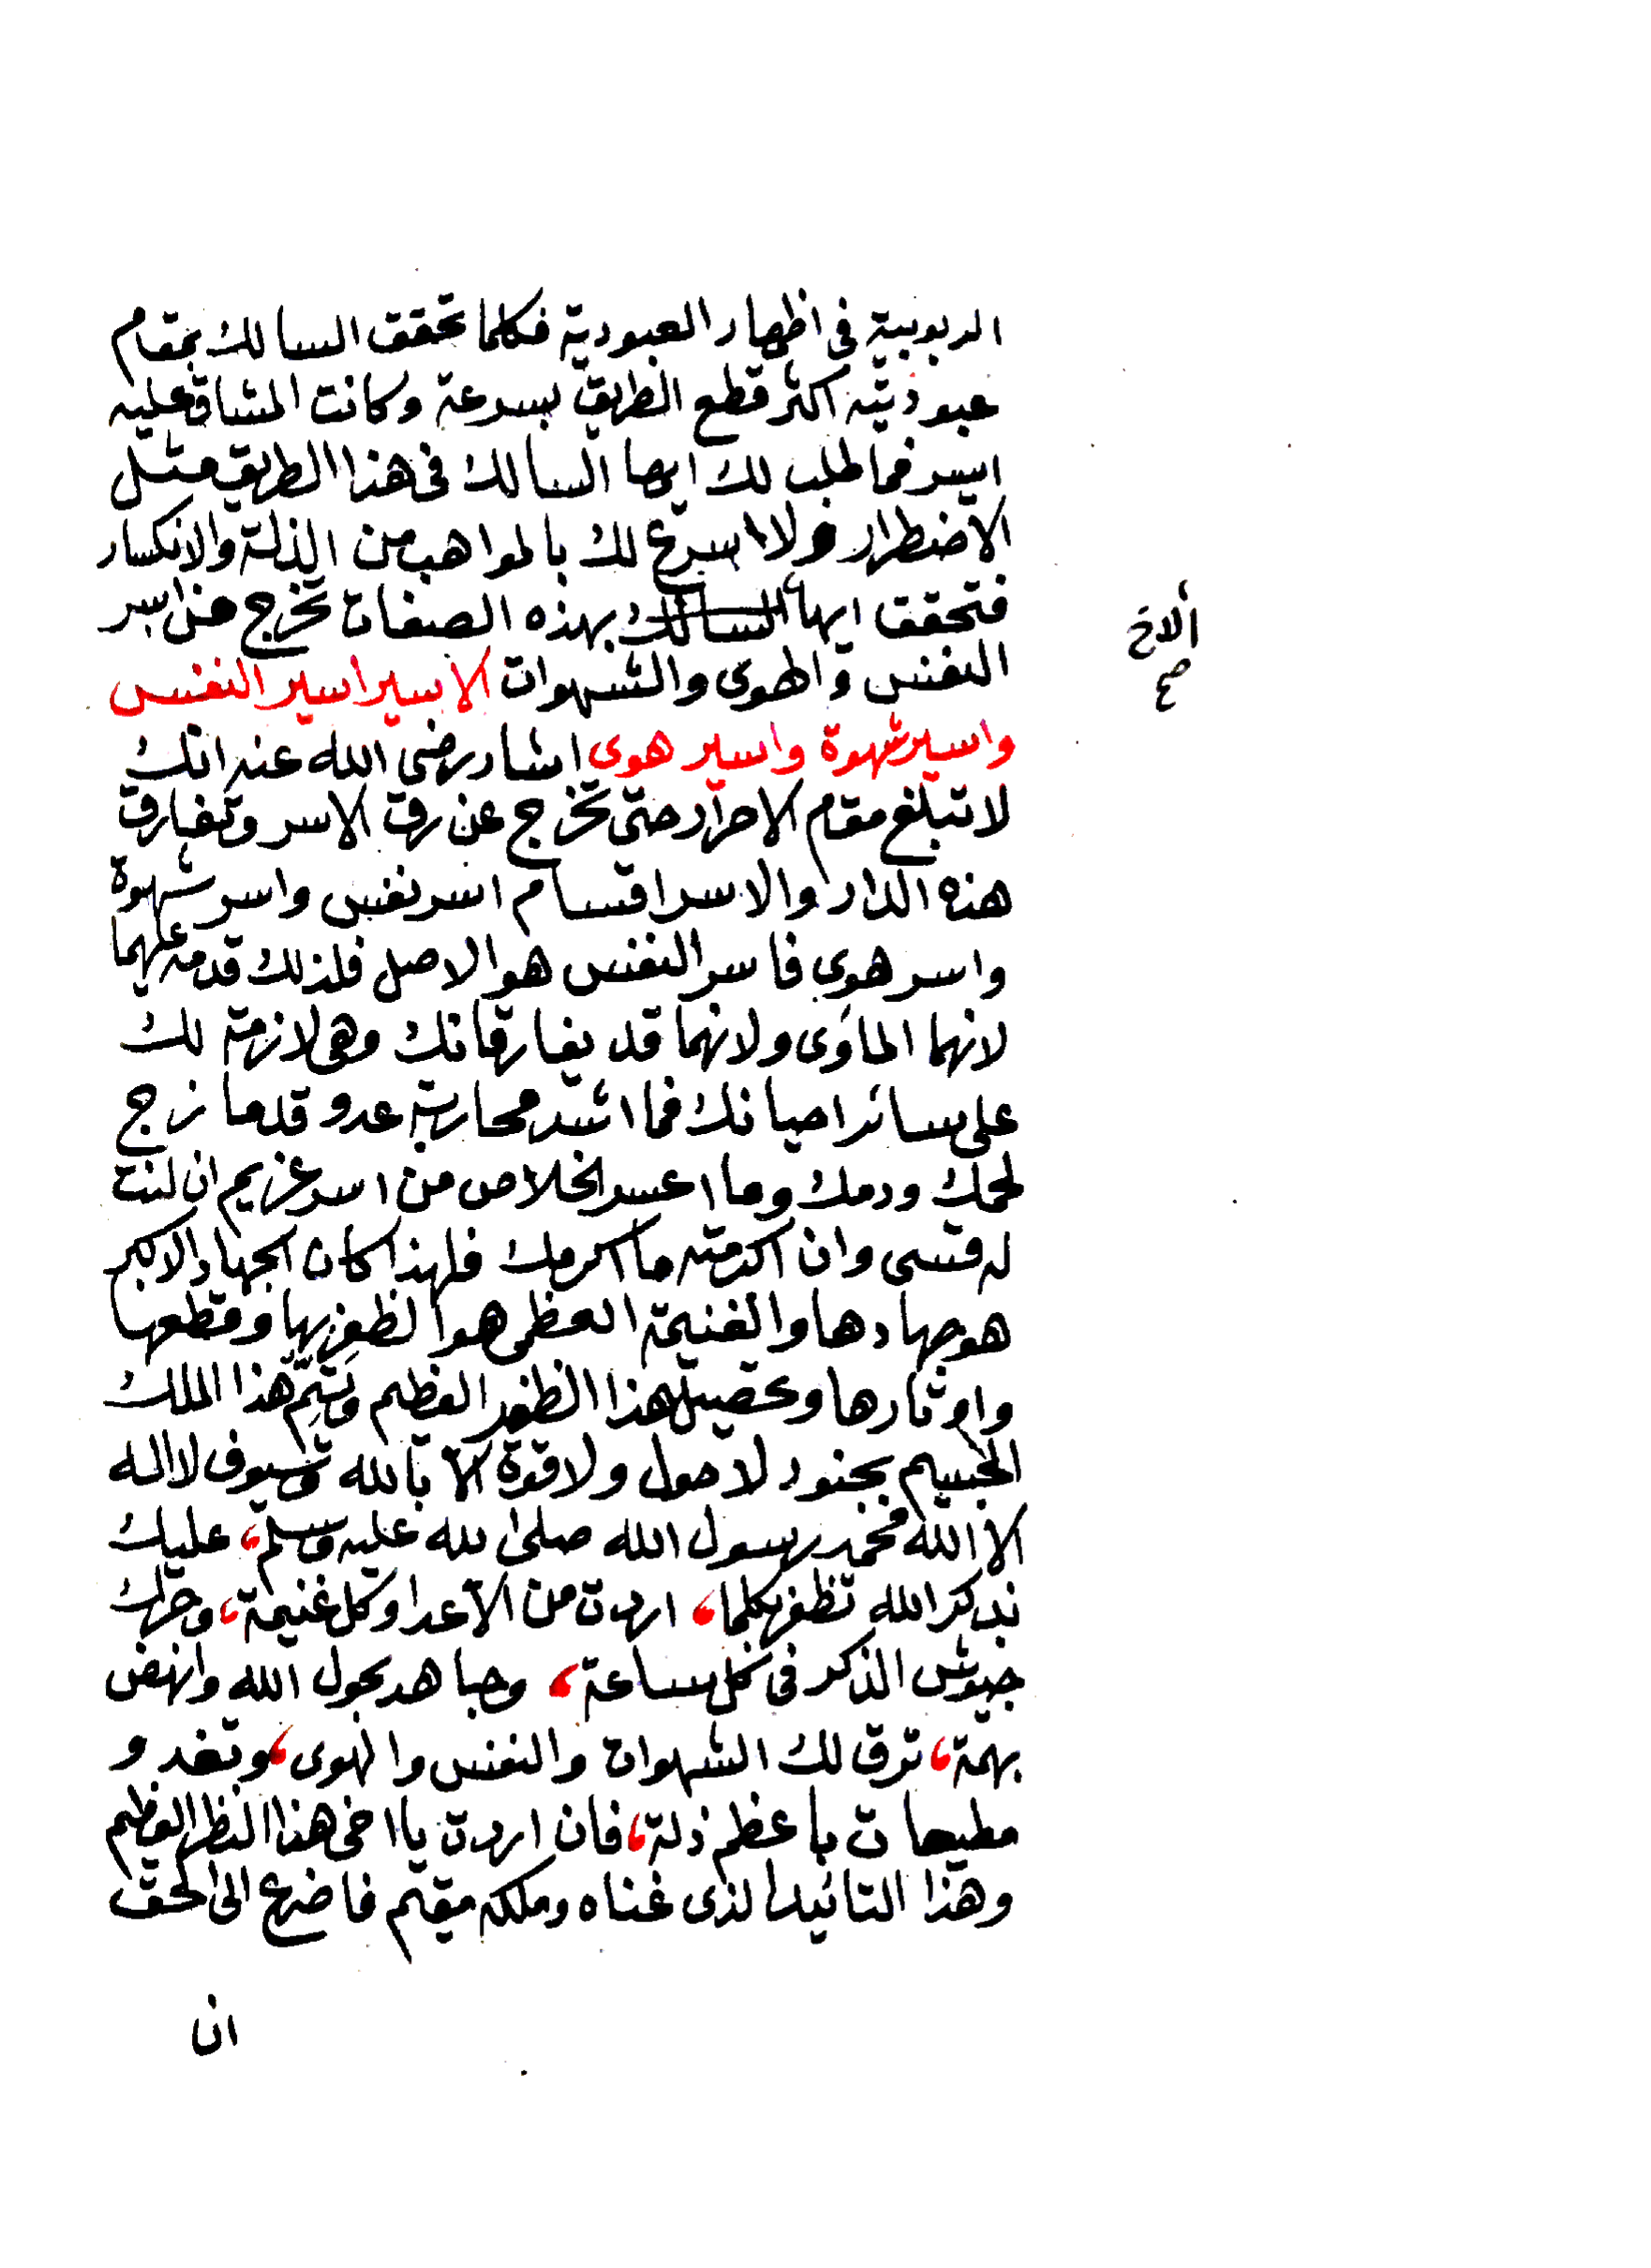 الربوبية فى اظهار العبودية فكلما تحقق السالك بمقام
عبوديته اكثر قطع الطريق بسرعة وكانت المشاق عليه
ايسر فما طلب لك ايها السالك فى هذا الطريق مثل
الاضطرار ولا اسرع لك بالمواهب من الذلة والانكسار
فتحقق ايها السالك بهذه الصفات تخرج من اسر
الاخ
صح
النفس والهوى والشهوات الاسير اسير النفس
واسير شهوة واسير هوى اشار رضى الله عنه انك
لا تبلغ مقام الاحرار حتى تخرج عن رق الاسر وتفارق
هذه الدار والاسر اقسام اسر نفس واسر شهوة
واسر هوى فاسر النفس هو الاصل فلذلك قدمه عليهما
لانها الماوى ولانهما قد يفارقانك وهى لازمة لك
على سائر احيانك فما اشد محاربة عدو قد مازج
لحمك ودمك وما اعسر الخلاص من اسر غريم ان لنت
له قسى وان اكرمته ما اكرمك فلهذا كان الجهاد الاكبر
هو جهادها والغنيمة العظمى هو الظفر بها وقطعها
واوثارها وتحصيل هذا الظفر العظيم وَيَتِمّ هذا الملك
الجسيم بجنود لا حول ولا قوة الا بالله وسيوف لا اله
الا الله محمد رسول الله صلى الله عليه وسلم، عليك
بذكر الله تظفر بكلما، اردت من الاعدا وكل غنيمة، وحرك
جيوش الذكر فى كل ساعة، وجاهد بحول الله وانهض
بهمة، ترق لك الشهوات والنفس والهوى، وتغدو
مطيعات باعظم ذلة، فان اردت يا اخى هذا النظر العظيم
وهذا التائيد الذى غناه وملكه مقيم فاضرع الى الحق
ان